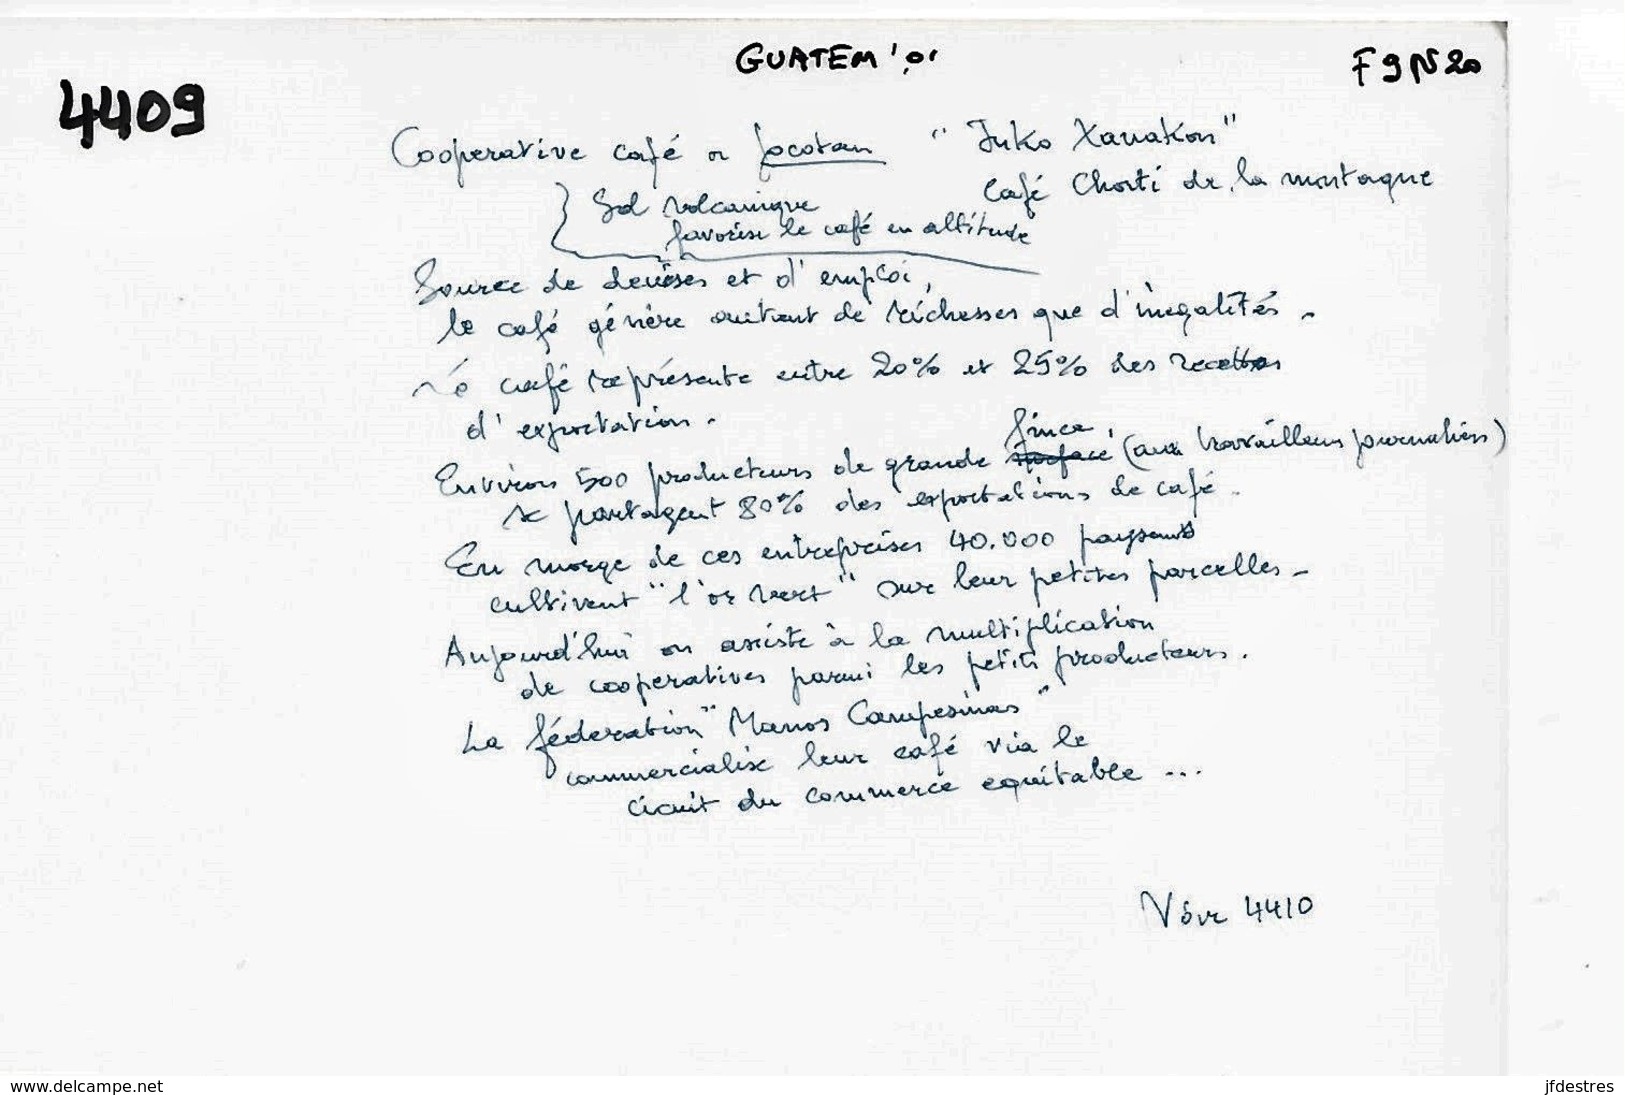 GUATEM '01
F9N20
4409
Cooperative café à Jocotan " Juko Xanakon"
Café Chorti de la montagne
Sol volcanique
favorise le café en altitude
Source de devises et d'emploi,
le café génère autant de richesses que d'inégalités.
Le café représente entre 20% et 25% des recettes
d'exportation.
Environ 500 producteurs de grande finca, (aux travailleurs journaliers)
se partagent 80% des exportations de café.
En marge de ces entreprises 40.000 paysans
cultivent "l'or vert" sur leur petites parcelles -
Aujourd'hui on assiste à la multiplication
de cooperatives parmi les petits producteurs.
La féderation "Manos Campesinas"
commercialise leur café via le
circuit du commerce equitable ...
Voir 4410
www.delcampe.net
jfdestres